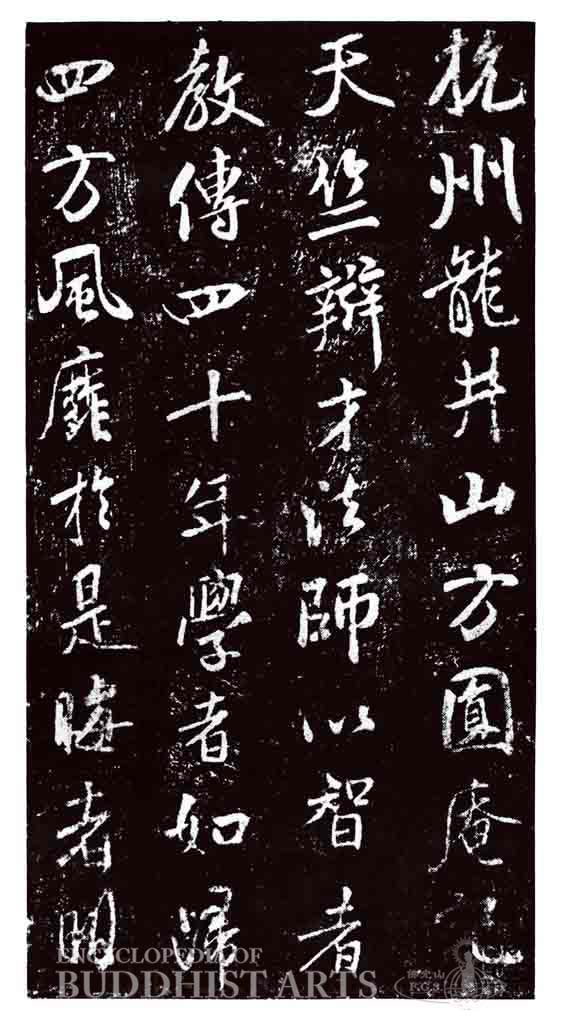 杭州龍井山方圓庵記
天竺辯才法師以智者
教傳四十年學者如歸
四方風靡於是晦者明
ENCYCLOPEDIA OF
BUDDHIST ARTS
佛光山
F.G.S.